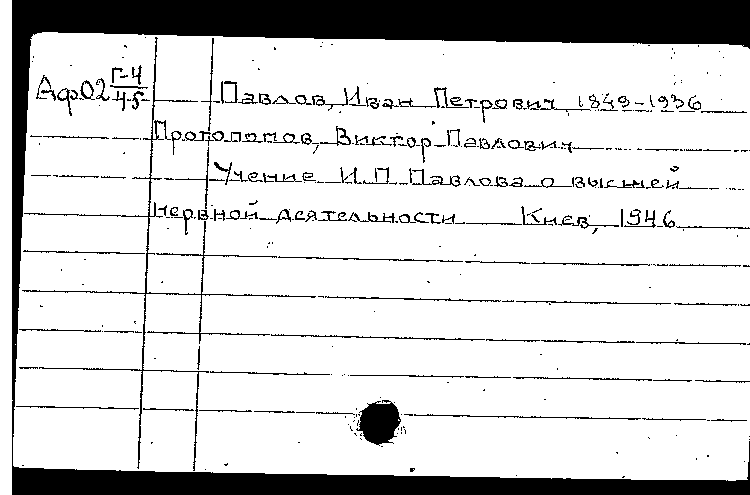 Аф02 Г-4/45 Павлов, Иван Петрович, 1849-1936
Протопопов, Виктор Павлович
Учение И.П. Павлова о высшей
нервной деятельности Киев, 1946